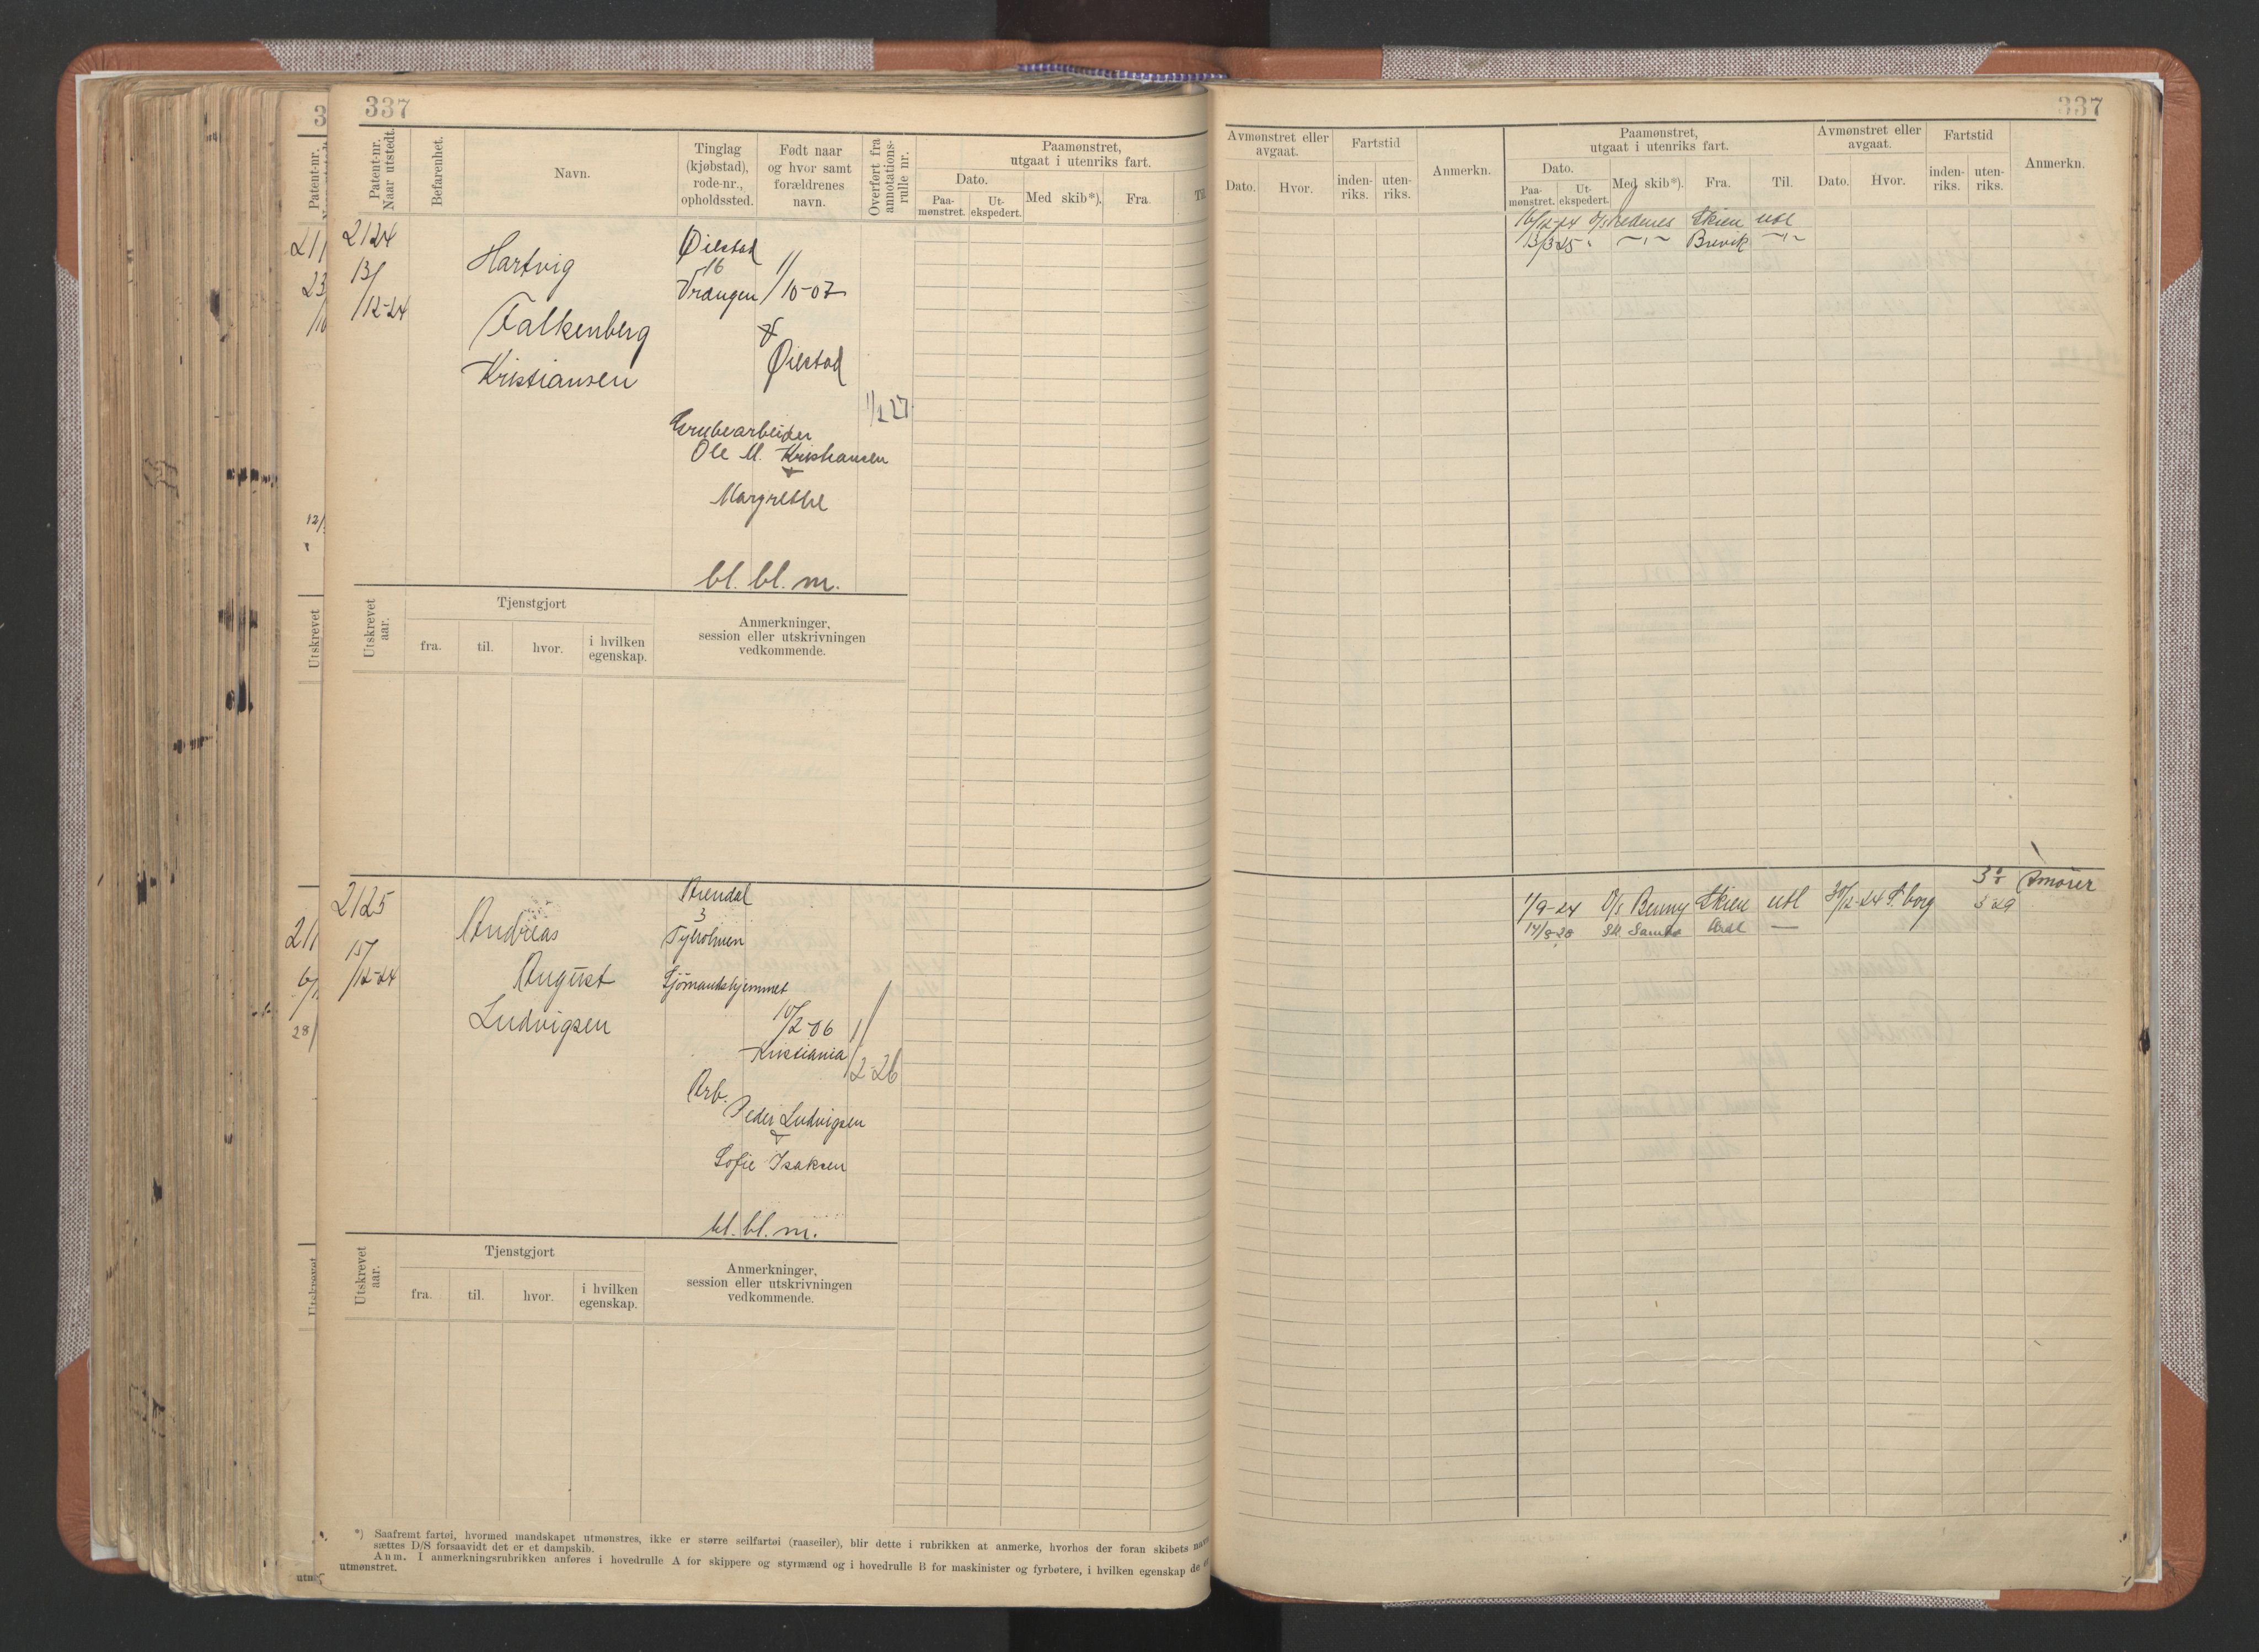 337
Patent-nr. Naar utstedt.
Befarenhet.
Navn.
Tinglag (kjøbstad), rode-nr., opholdssted.
Født naar og hvor samt forældrenes navn.
Overført fra annotations-rulle nr.
Paamønstret, utgaat i utenriks fart.
Dato.
Paa-mønstret.
Ut-ekspedert.
Med skib*).
Fra.
2124
13/12-24
Hartvig
Falkenberg
Kristiansen
Øiestad
16
Vrangen
1/10-07
Øiestad
1/1 27
Grubearbeider
Ole M. Kristiansen
Margrethe
bl. bl. m.
Utskrevet aar.
Tjenstgjort
fra.
til.
hvor.
i hvilken egenskap.
Anmerkninger, session eller utskrivningen vedkommende.
2125
15/12-24
Andreas
August
Ludvigsen
Arendal
3
Tyholmen
Sjömandshjemmet
10/2-06
Kristiania
1/2-26
Arb.
Peder Ludvigsen
Sofie Isaksen
bl. bl. m.
Utskrevet aar.
Tjenstgjort
fra.
til.
hvor.
i hvilken egenskap.
Anmerkninger, session eller utskrivningen vedkommende.
*) Saafremt fartøi, hvormed mandskapet utmønstres, ikke er større seilfartøi (raaseiler), blir dette i rubrikken at anmerke, hvorhos der foran skibets navn
sættes D/S forsaavidt det er et dampskib.
Anm. I anmerkningsrubrikken anføres i hovedrulle A for skippere og styrmænd og i hovedrulle B for maskinister og fyrbøtere, i hvilken egenskap de
utmønstret.
337
Avmønstret eller avgaat.
Dato.
Hvor.
Fartstid
inden-riks.
uten-riks.
Anmerkn.
Paamønstret, utgaat i utenriks fart.
Dato.
Paa-mønstret.
Ut-ekspedert.
Med skib*).
Fra.
Til.
Avmønstret eller avgaat.
Dato.
Hvor.
Fartstid
inden-riks.
uten-riks.
Anmerkn.
16/12-24 D/S Nedenes Skien utl
13/3-25 " —"— Brevik —"—
1/9-24 D/S Benny Skien utl 30/12-24 S.borg
Smörer
14/8-28